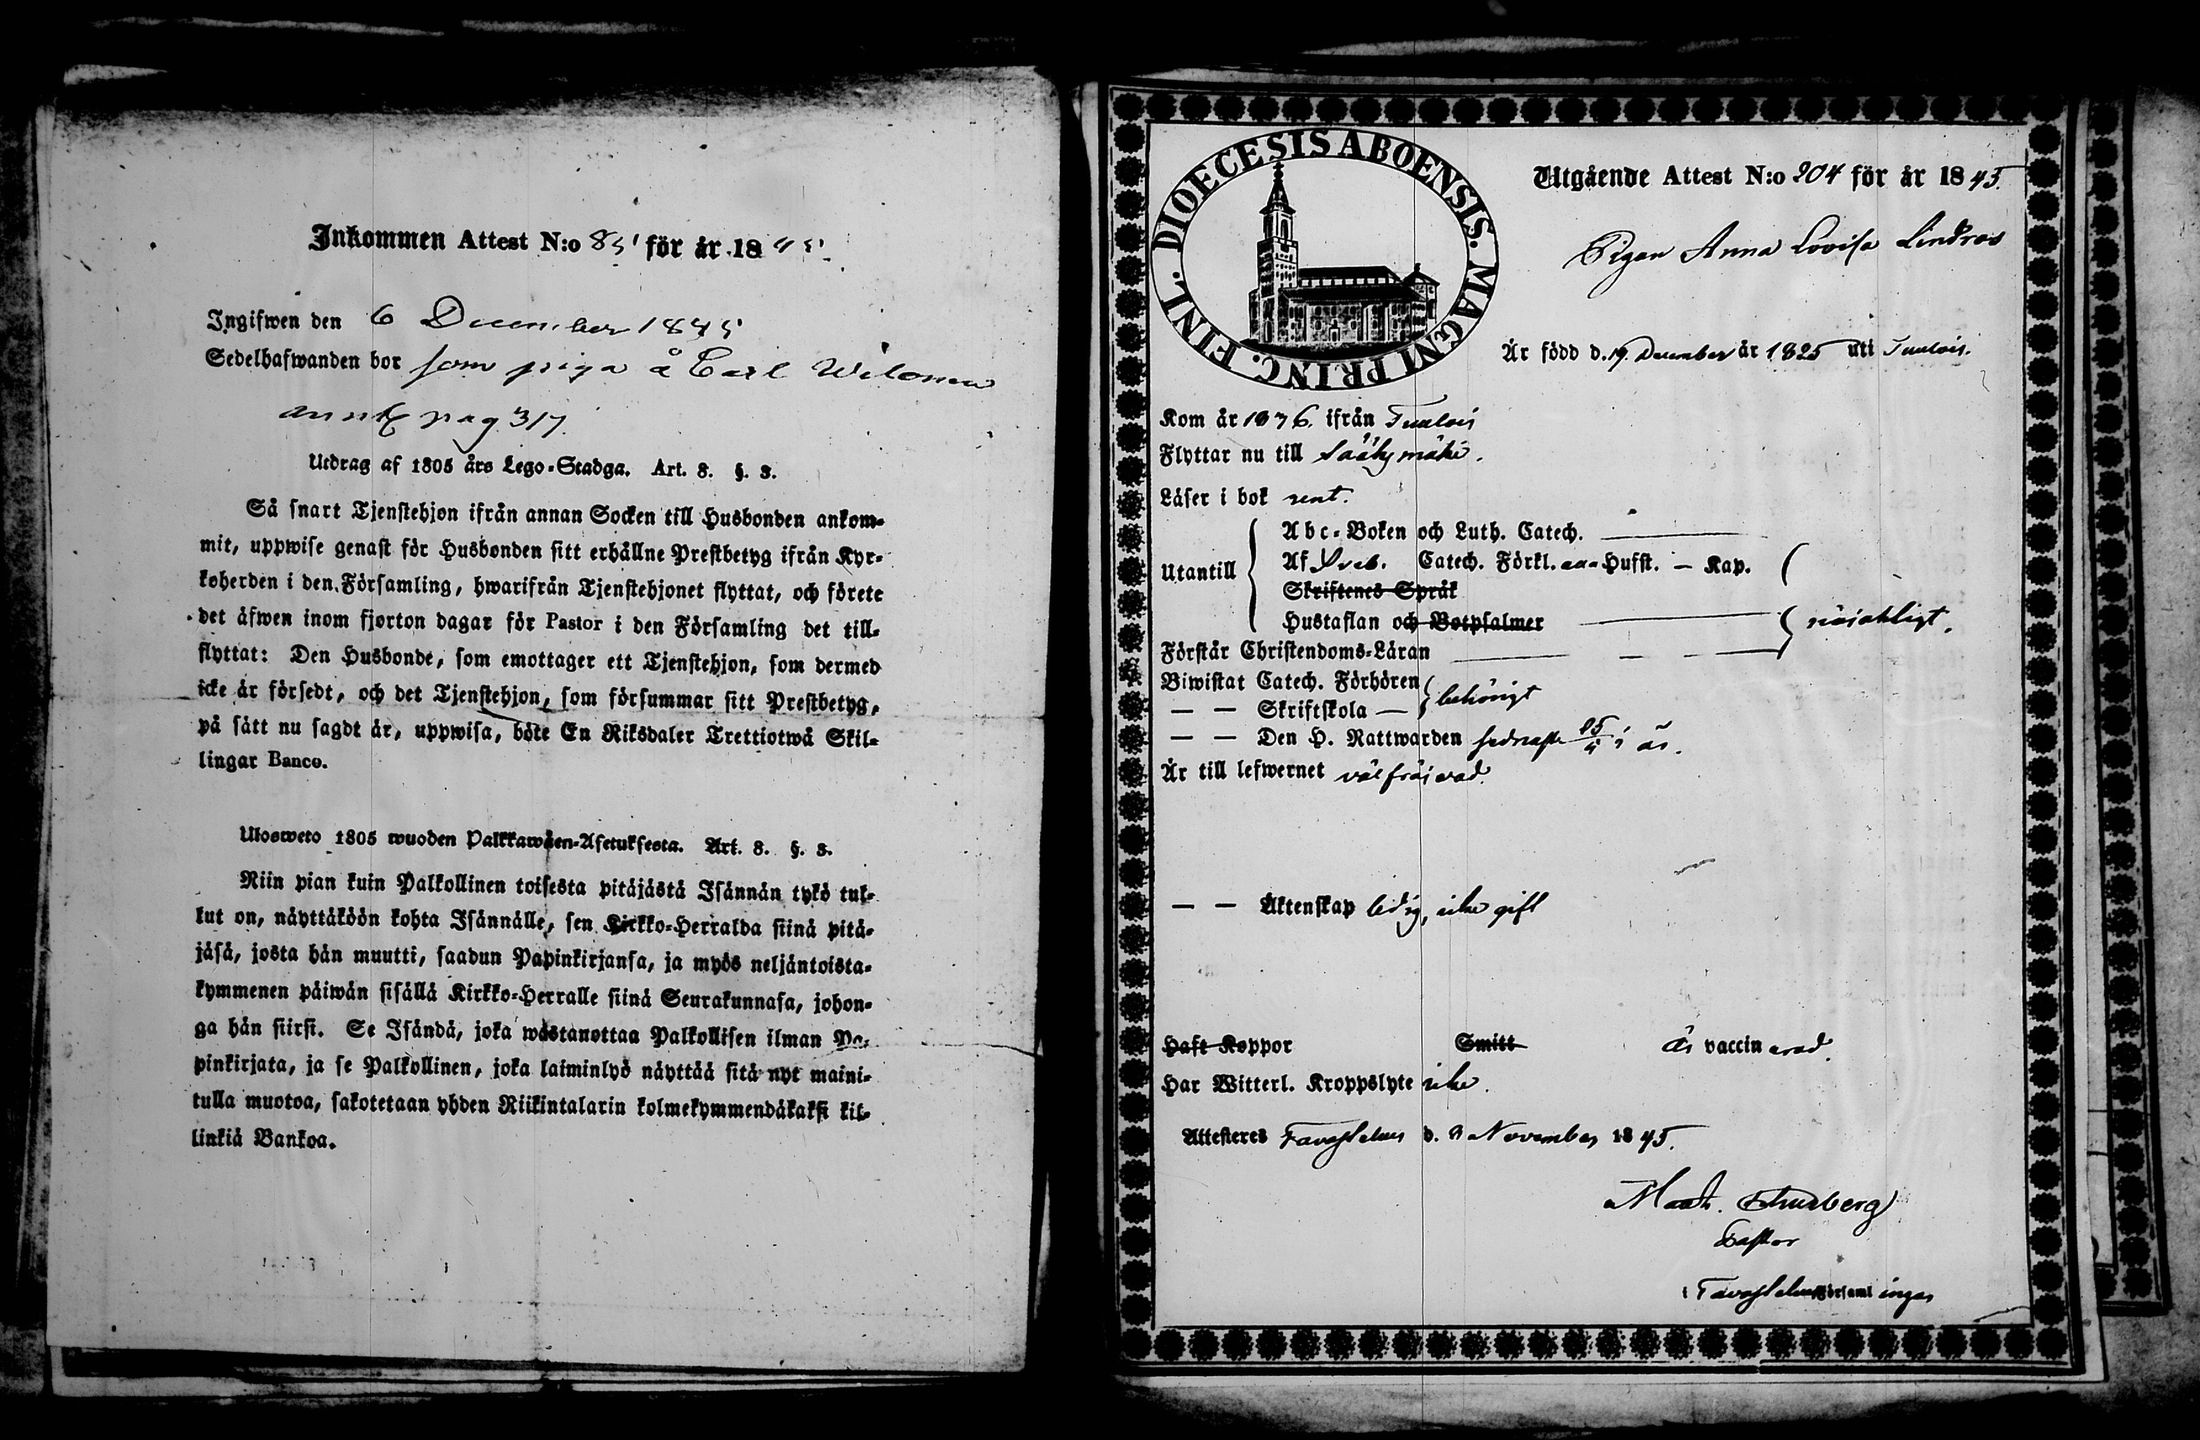 Inkommen Attest N:o 85 för år 1845.
Ingifwen den 6 December 1845
Sedelhafwanden bor som piga å Carl Wilomen
pag 317.
Utdrag af 1805 års Lego-Stadga. Art. 8. §. 3.
Så snart Tjenstehjon ifrån annan Socken till Husbonden ankom-
mit, uppwise genast för Husbonden sitt erhållne Prestbetyg ifrån Kyr-
koherden i den Församling, hwarifrån Tjenstehjonet flyttat, och förete
det äfwen inom fjorton dagar för Pastor i den Församling det till-
flyttat: Den Husbonde, som emottager ett Tjenstehjon, som dermed
icke är försedt, och det Tjenstehjon, som försummar sitt Prestbetyg,
på sätt nu sagdt är, uppwisa, böte En Riksdaler Trettiotwå Skil-
lingar Banco.
Ulosweto 1805 wuoden Palkkawäen-Asetuksesta. Art. 8. §. 3.
Niin pian kuin Palkollinen toisesta pitäjästä Isännän tykö tul-
lut on, näyttäköön kohta Isännälle, sen Kirkko-Herralda siinä pitä-
jäsä, josta hän muutti, saadun Papinkirjansa, ja myös neljäntoista-
kymmenen päiwän sisällä Kirkko-Herralle siinä Seurakunnasa, johon-
ga hän siirsi. Se Isändä, joka wastanottaa Palkollisen ilman Pa-
pinkirjata, ja se Palkollinen, joka laiminlyö näyttää sitä nyt maini-
tulla muotoa, sakotetaan yhden Riikintalarin kolmekymmendäkaksi kil-
linkiä Bankoa.
DIOECESIS ABOENSIS. MAGNI PRINC. FINL.
Utgående Attest N:o 204 för år 1845.
Pigan Anna Lovisa Lindros
Är född d. 19. December år 1825 uti Tuulois.
Kom år 1836. ifrån Tuulois
Flyttar nu till Sääksmäki.
Läser i bok rent.
Utantill
Abc-Boken och Luth. Catech.
Af Sveb. Catech. Förkl. Hufst. — Kap.
Skriftenes Språk
Hustaflan och Botpsalmer
nöjaktligt.
Förstår Christendoms-Läran
Biwistat Catech. Förhören
behörigt
— — Skriftskola —
— — Den H. Nattwarden sednast 25/5 i år.
Är till lefwernet välfräjdad.
— — Äktenskap ledig, icke gift
Haft Koppor Smitt Är vaccinerad.
Har Witterl. Kroppslyte icke.
Attesteres Tavastehus d. 8 November 1845.
Math. Thurberg
Pastor
i Tavastehus Församlingar